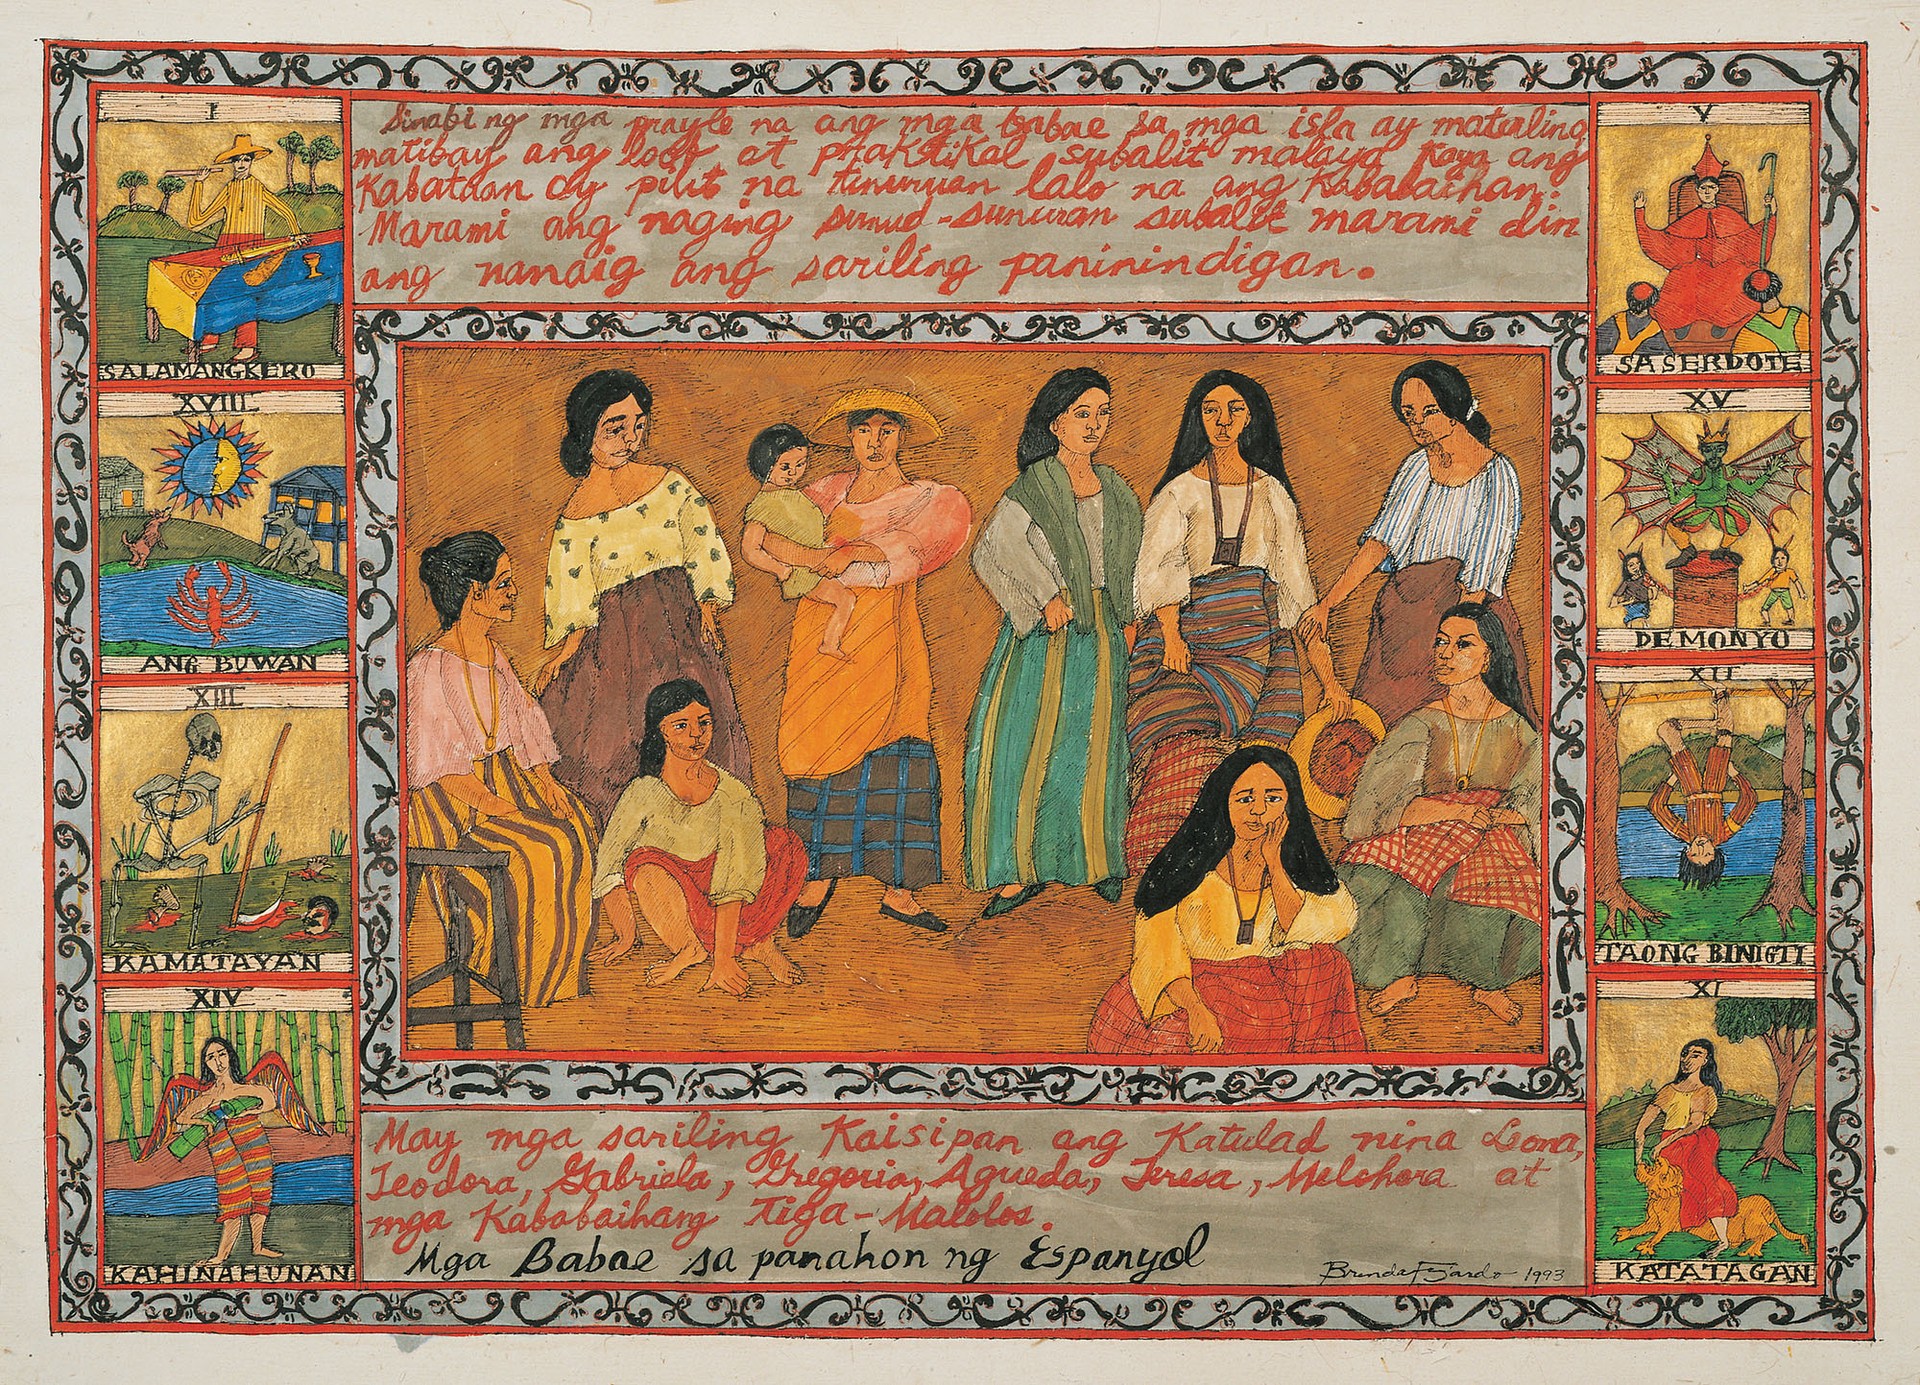 I
SALAMANGKERO
XVIII
ANG BUWAN
XIII
KAMATAYAN
XIV
KAHINAHUNAN
Sinabi ng mga prayle na ang mga babae sa mga isla ay matalino,
matibay ang loob at praktikal subalit malaya kaya ang
Kabataan ay pilit na tinuruan lalo na ang Kababaihan.
Marami ang naging sunud-sunuran subalit marami din
ang nanaig ang sariling paninindigan.
May mga sariling Kaisipan ang Katulad nina Leona,
Teodora, Gabriela, Gregoria, Agueda, Teresa, Melchora at
mga Kababaihang Taga-Malolos.
Mga Babae sa panahon ng Espanyol
Brenda Fajardo 1993
V
SASERDOTE
XV
DEMONYO
XII
TAONG BINIGTI
XI
KATATAGAN